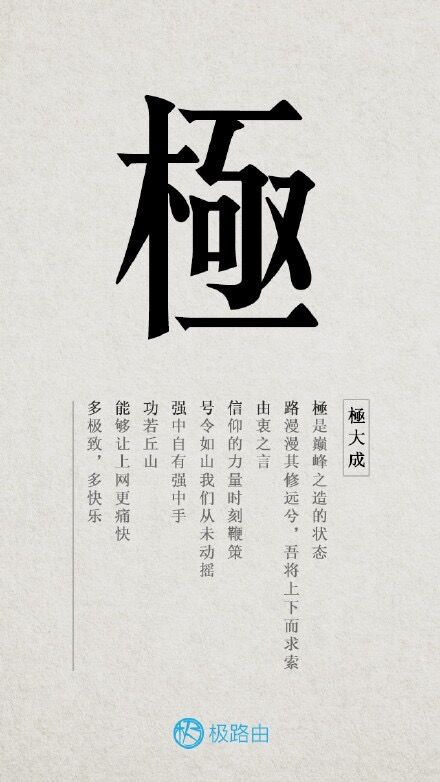 極
極大成
極是巅峰之造的状态
路漫漫其修远兮，吾将上下而求索
由衷之言
信仰的力量时刻鞭策
号令如山我们从未动摇
强中自有强中手
功若丘山
能够让上网更痛快
多极致，多快乐
极路由